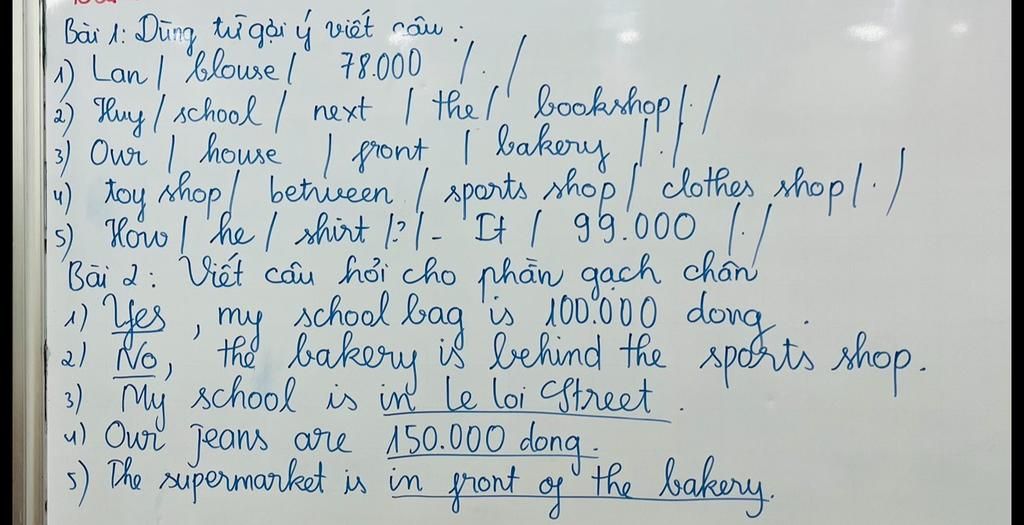 Bài 1: Dùng từ gợi ý viết câu:
1) Lan / blouse / 78.000 / . /
2) Huy / school / next / the / bookshop / . /
3) Our / house / front / bakery / . /
4) toy shop / between / sports shop / clothes shop / . /
5) How / he / shirt / ? / - It / 99.000 / . /
Bài 2: Viết câu hỏi cho phần gạch chân
1) Yes, my school bag is 100.000 dong.
2) No, the bakery is behind the sports shop.
3) My school is in Le Loi Street.
4) Our jeans are 150.000 dong.
5) The supermarket is in front of the bakery.